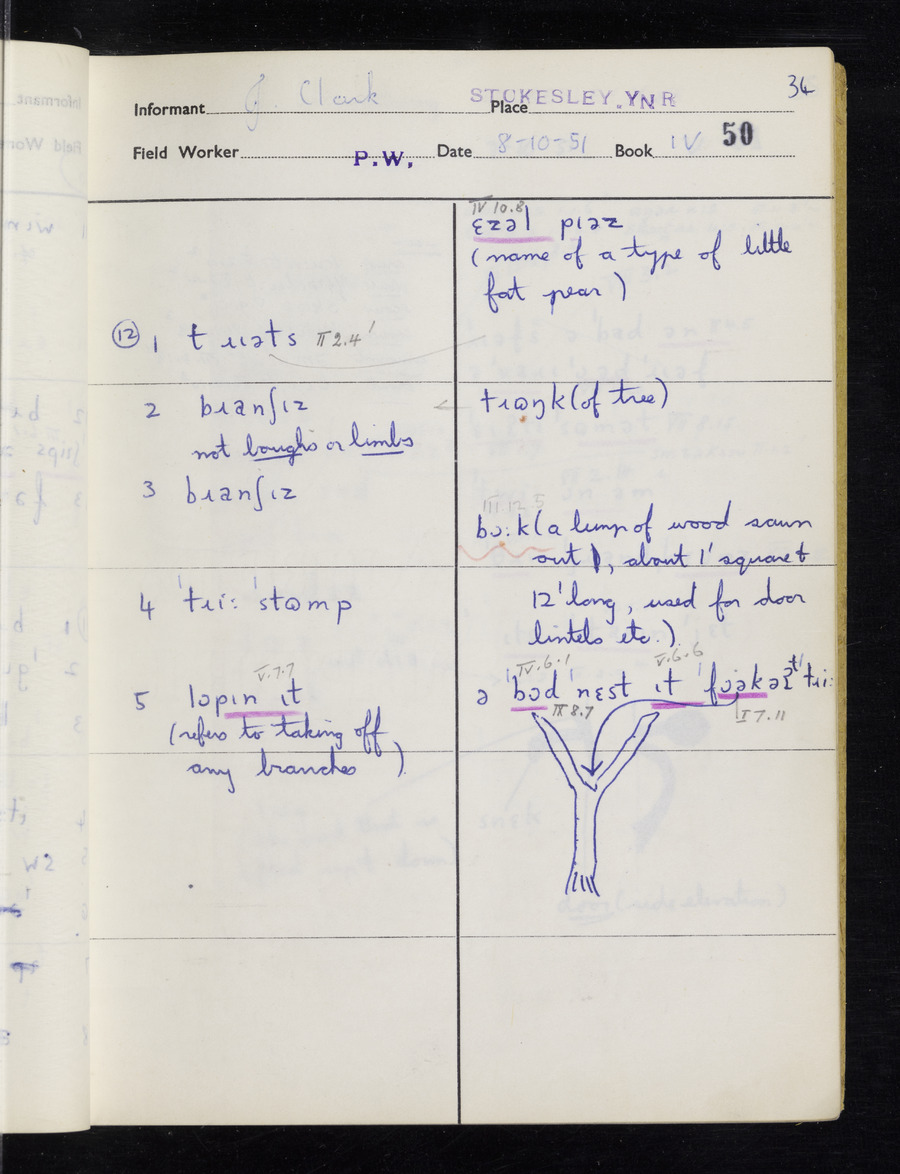 36
Informant J. Clark Place STOKESLEY. YNR
Field Worker P.W. Date 8-10-51 Book IV 50
IV 10.8
ɛzəl pɪəz
(name of a type of little
fat pear)
⑫ 1 t ɹɪəts II 2.4
2 bɹanʃɪz
not boughs or limbs
3 bɹanʃɪz
4 'tɹi: 'stɷmp
5 lɒpɪn ɪt
V.7.7
(refers to taking off
any branches)
tɹɷŋk (of tree)
III.12.5
bɔ:k (a lump of wood sawn
out, about 1' square &
12' long, used for door
lintels etc.)
IV.6.1 V.6.6
ə 'bɔd 'nɛst ɪt tɹi:
IV 8.7 I 7.11